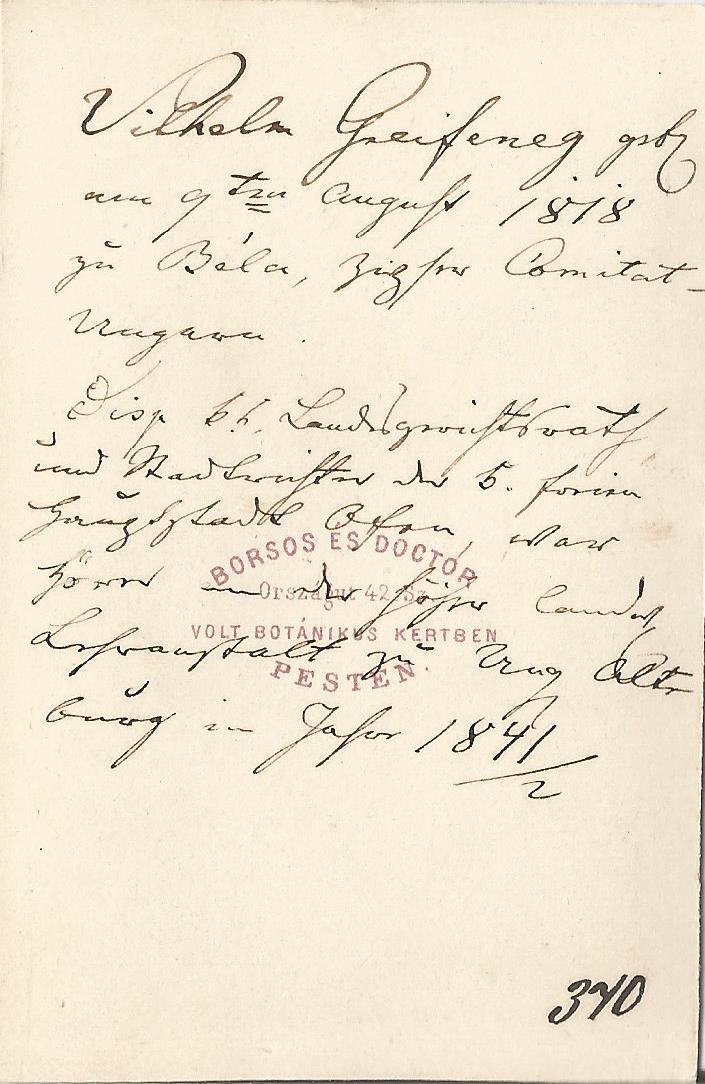 Vilhelm Greifeneg geb.
am 9ten August 1818
zu Béla, Zipser Comitat-
Ungarn.
Disp. k. k. Landesgerichtsrath
und Stadtrichter der k. freien
Hauptstadt Ofen, war
Hörer an der höher landw
Lehranstalt zu Ung Alten
burg im Jahre 1841/2
BORSOS ES DOCTOR
Országut 42 Sz.
VOLT BOTÁNIKUS KERTBEN
PESTEN.
370